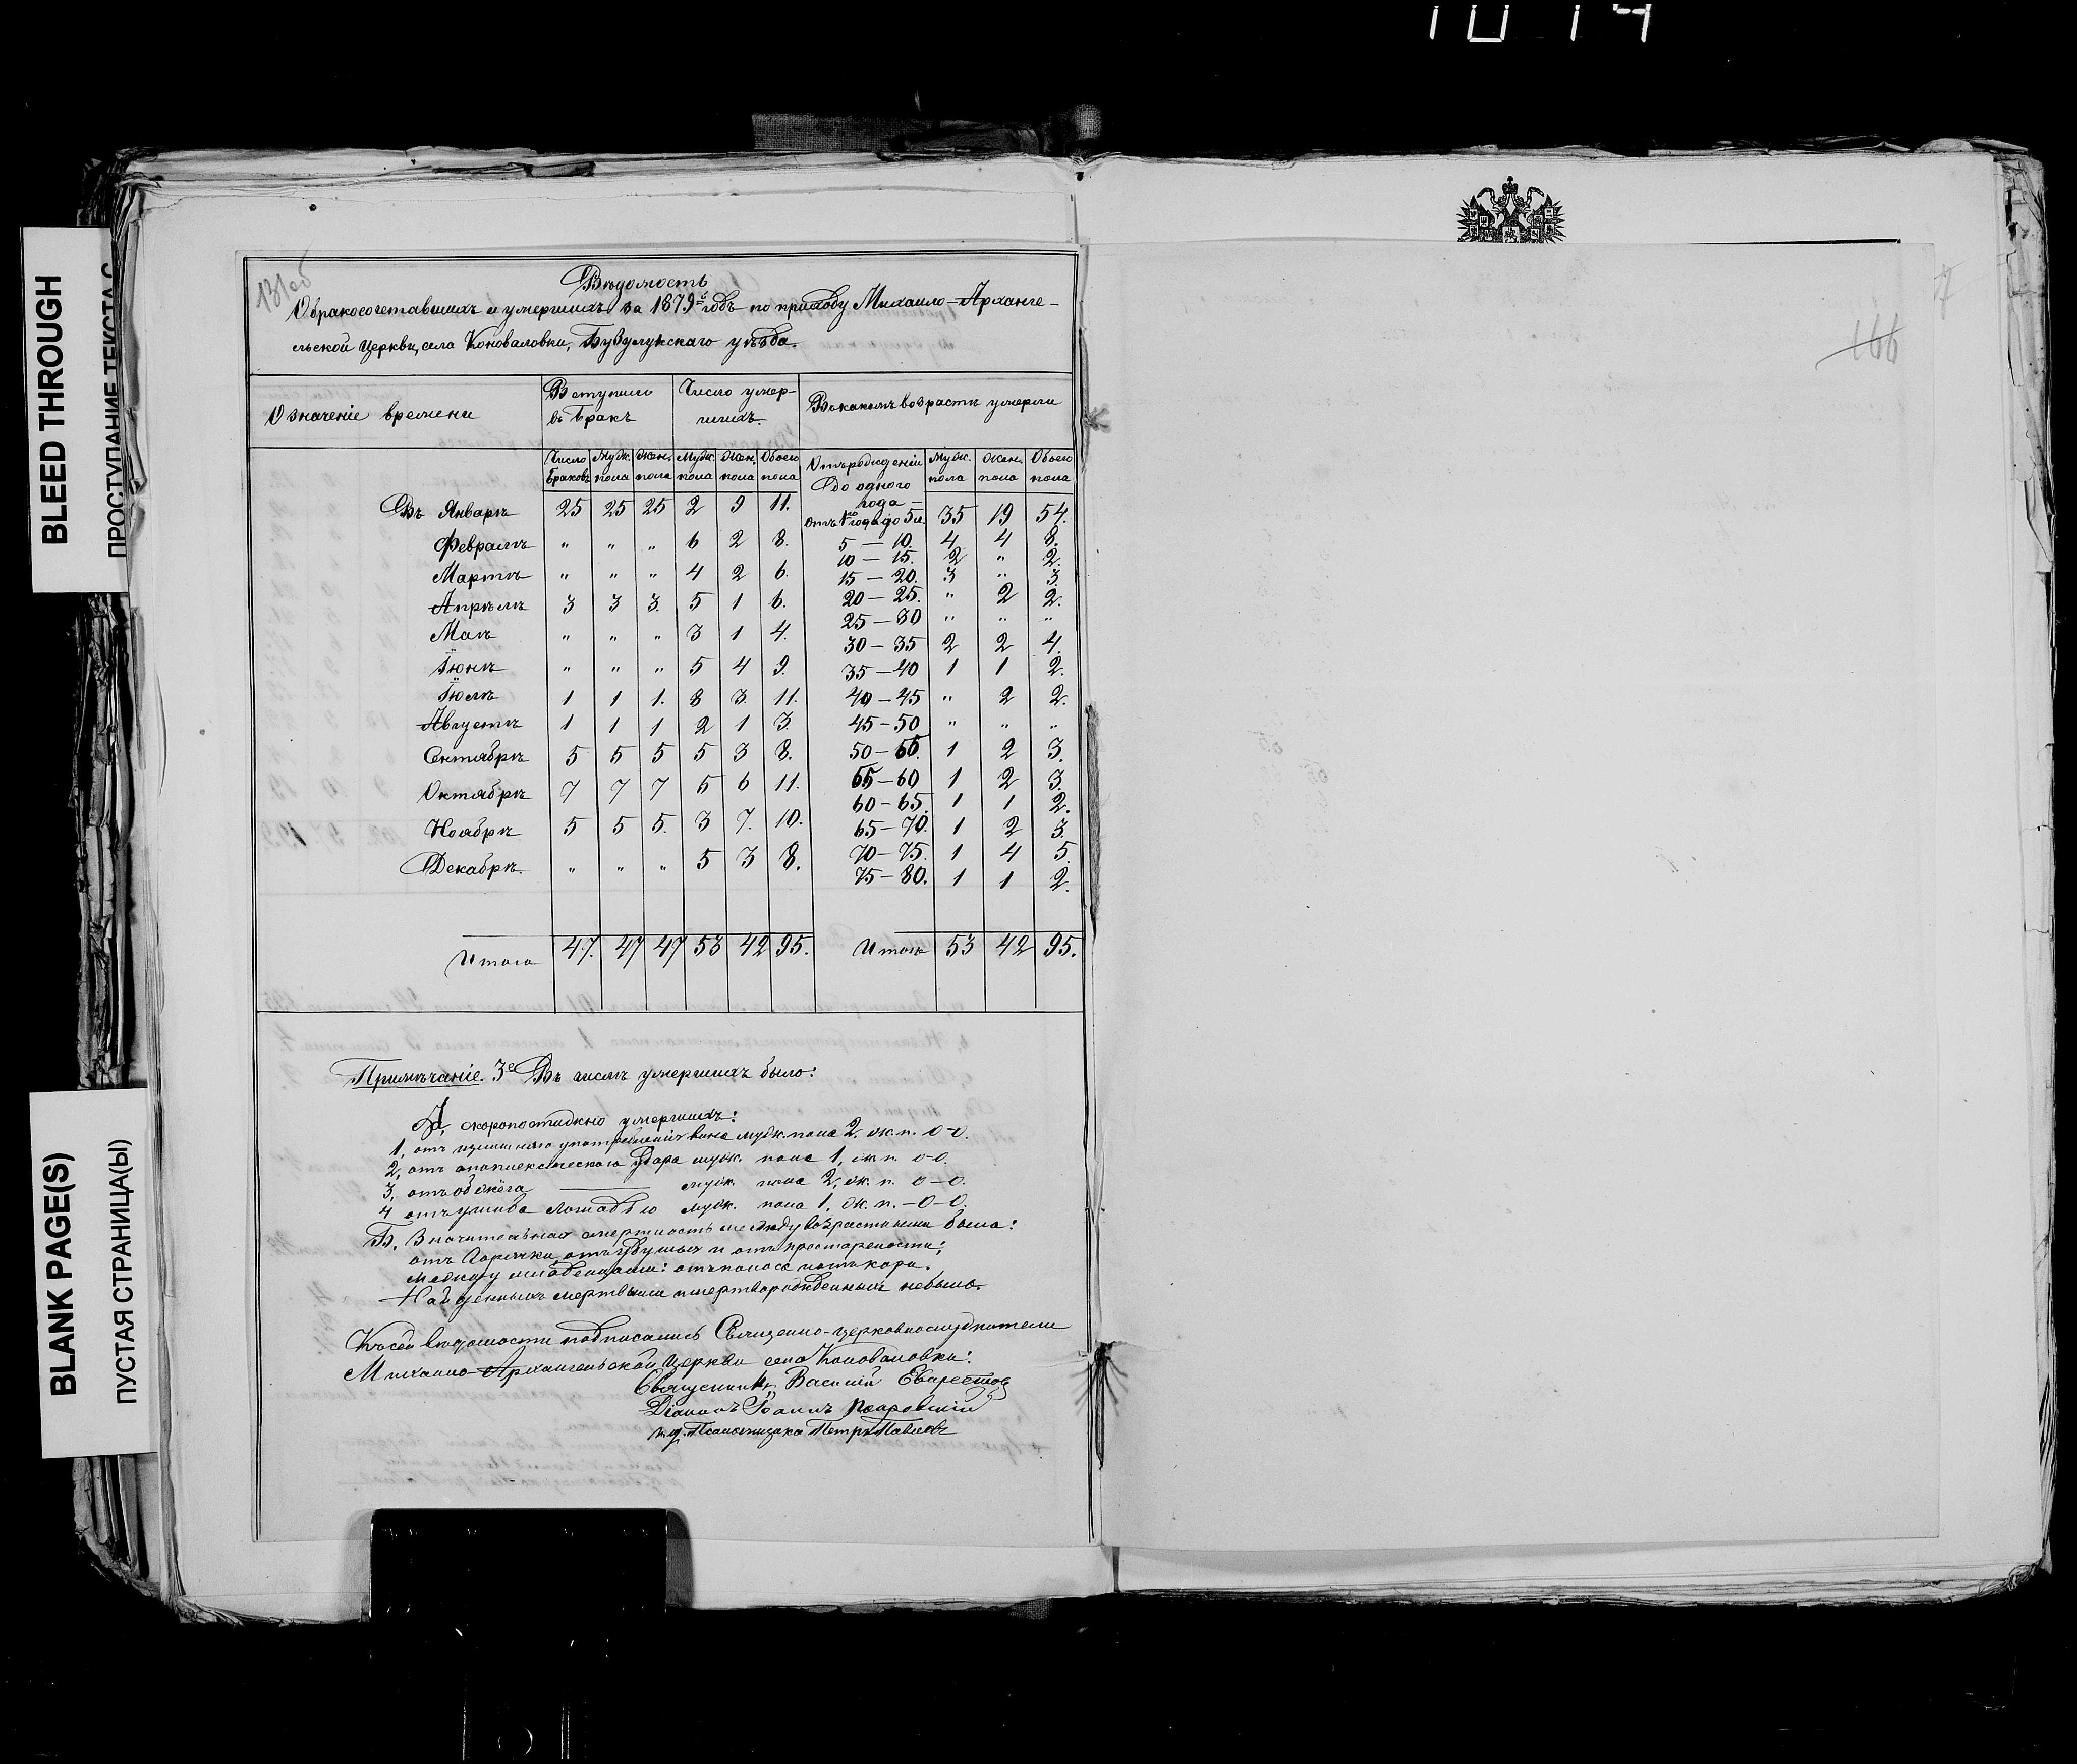 10 14
BLEED THROUGH
ПРОСТУПАНИЕ ТЕКСТА С
BLANK PAGE(S)
ПУСТАЯ СТРАНИЦА(Ы)
131об
166
Вѣдомость
О бракосочетавшихъ и умершихъ за 1879й годъ по приходу Михаило-Арханге-
льской Церкви, села Коноваловки, Бузулукскаго уѣзда.
Означеніе времени | Вступило въ Бракъ | Число умер-шихъ | Въ какомъ возрастѣ умерли
Число Браковъ | Муж. пола | Жен. пола | Муж. пола | Жен. пола | Обоего пола | Отъ рожденія До одного года – | Муж. пола | Жен. пола | Обоего пола
Въ Январѣ 25 25 25 2 9 11. | отъ 1го года до 5 л. 35 19 54.
Февралѣ " " " 6 2 8. | 5 – 10. 4 4 8.
Мартѣ " " " 4 2 6. | 10 – 15. 2 " 2.
15 – 20. 3 " 3.
Апрѣлѣ 3 3 3. 5 1 6. | 20 – 25. " 2 2.
Маѣ " " " 3 1 4. | 25 – 30 " " "
30 – 35 2 2 4.
Іюнѣ " " " 5 4 9. | 35 – 40 1 1 2.
Іюлѣ 1 1 1. 8 3. 11. | 40 – 45 " 2 2.
Августѣ 1 1 1 2 1 3. | 45 – 50 " " "
Сентябрѣ 5 5 5 5 3 8. | 50 – 55. 1 2 3.
Октябрѣ 7 7 7 5 6 11. | 55 – 60 1 2 3.
60 – 65. 1 1 2.
Ноябрѣ 5 5 5. 3 7. 10. | 65 – 70. 1 2 3.
Декабрѣ. " " " 5 3 8. | 70 – 75. 1 4 5.
75 – 80. 1 1 2.
Итого 47. 47 47 53 42 95. | Итого 53 42 95.
Примѣчаніе. 3е Въ числѣ умершихъ было:
А, скоропостижно умершихъ:
1, отъ излишняго употребленія вина муж. пола 2, ж. п. 0-0.
2, отъ апоплексическаго удара муж. пола 1, ж. п. 0-0.
3, отъ обжёга —— муж. пола 2, ж. п. 0-0.
4 отъ ушиба лошадью муж. пола 1, ж. п. – 0-0.
Б, Значительная смертность между возрастными была:
отъ Горячки, отъ удушья и отъ престарелости;
между младенцами: отъ поноса и отъ кори.
Найденныхъ мертвыми и мертворожденныхъ небыло.
Къ сей вѣдомости подписались Священно-церковнослужители
Михаило-Архангельской Церкви села Коноваловки:
Священникъ Василій Еварестов
Діаконъ Іоаннъ Покровскій
и. д. Псаломщика Петръ Павловъ